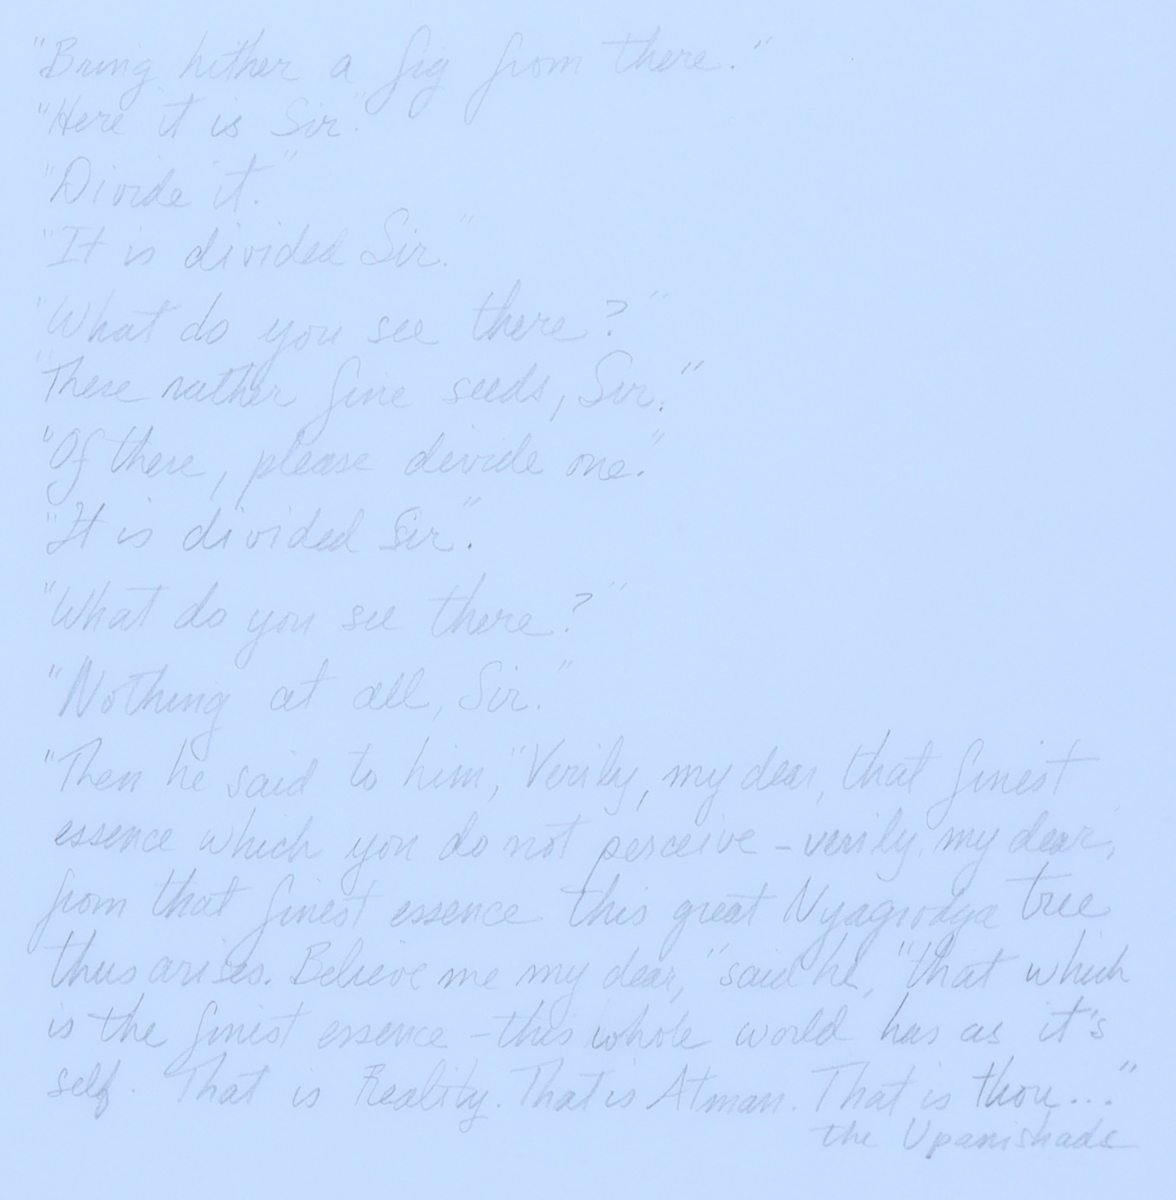 "Bring hither a fig from there."
"Here it is Sir."
"Divide it."
"It is divided Sir."
"What do you see there?"
"These rather fine seeds, Sir."
"Of these, please divide one."
"It is divided Sir".
"What do you see there?"
"Nothing at all, Sir."
"Then he said to him, "Verily, my dear, that finest
essence which you do not perceive – verily, my dear,
from that finest essence this great Nyagrodga tree
thus arises. Believe me my dear," said he, "that which
is the finest essence – this whole world has as it's
self. That is Reality. That is Atman. That is thou..."
the Upanishads